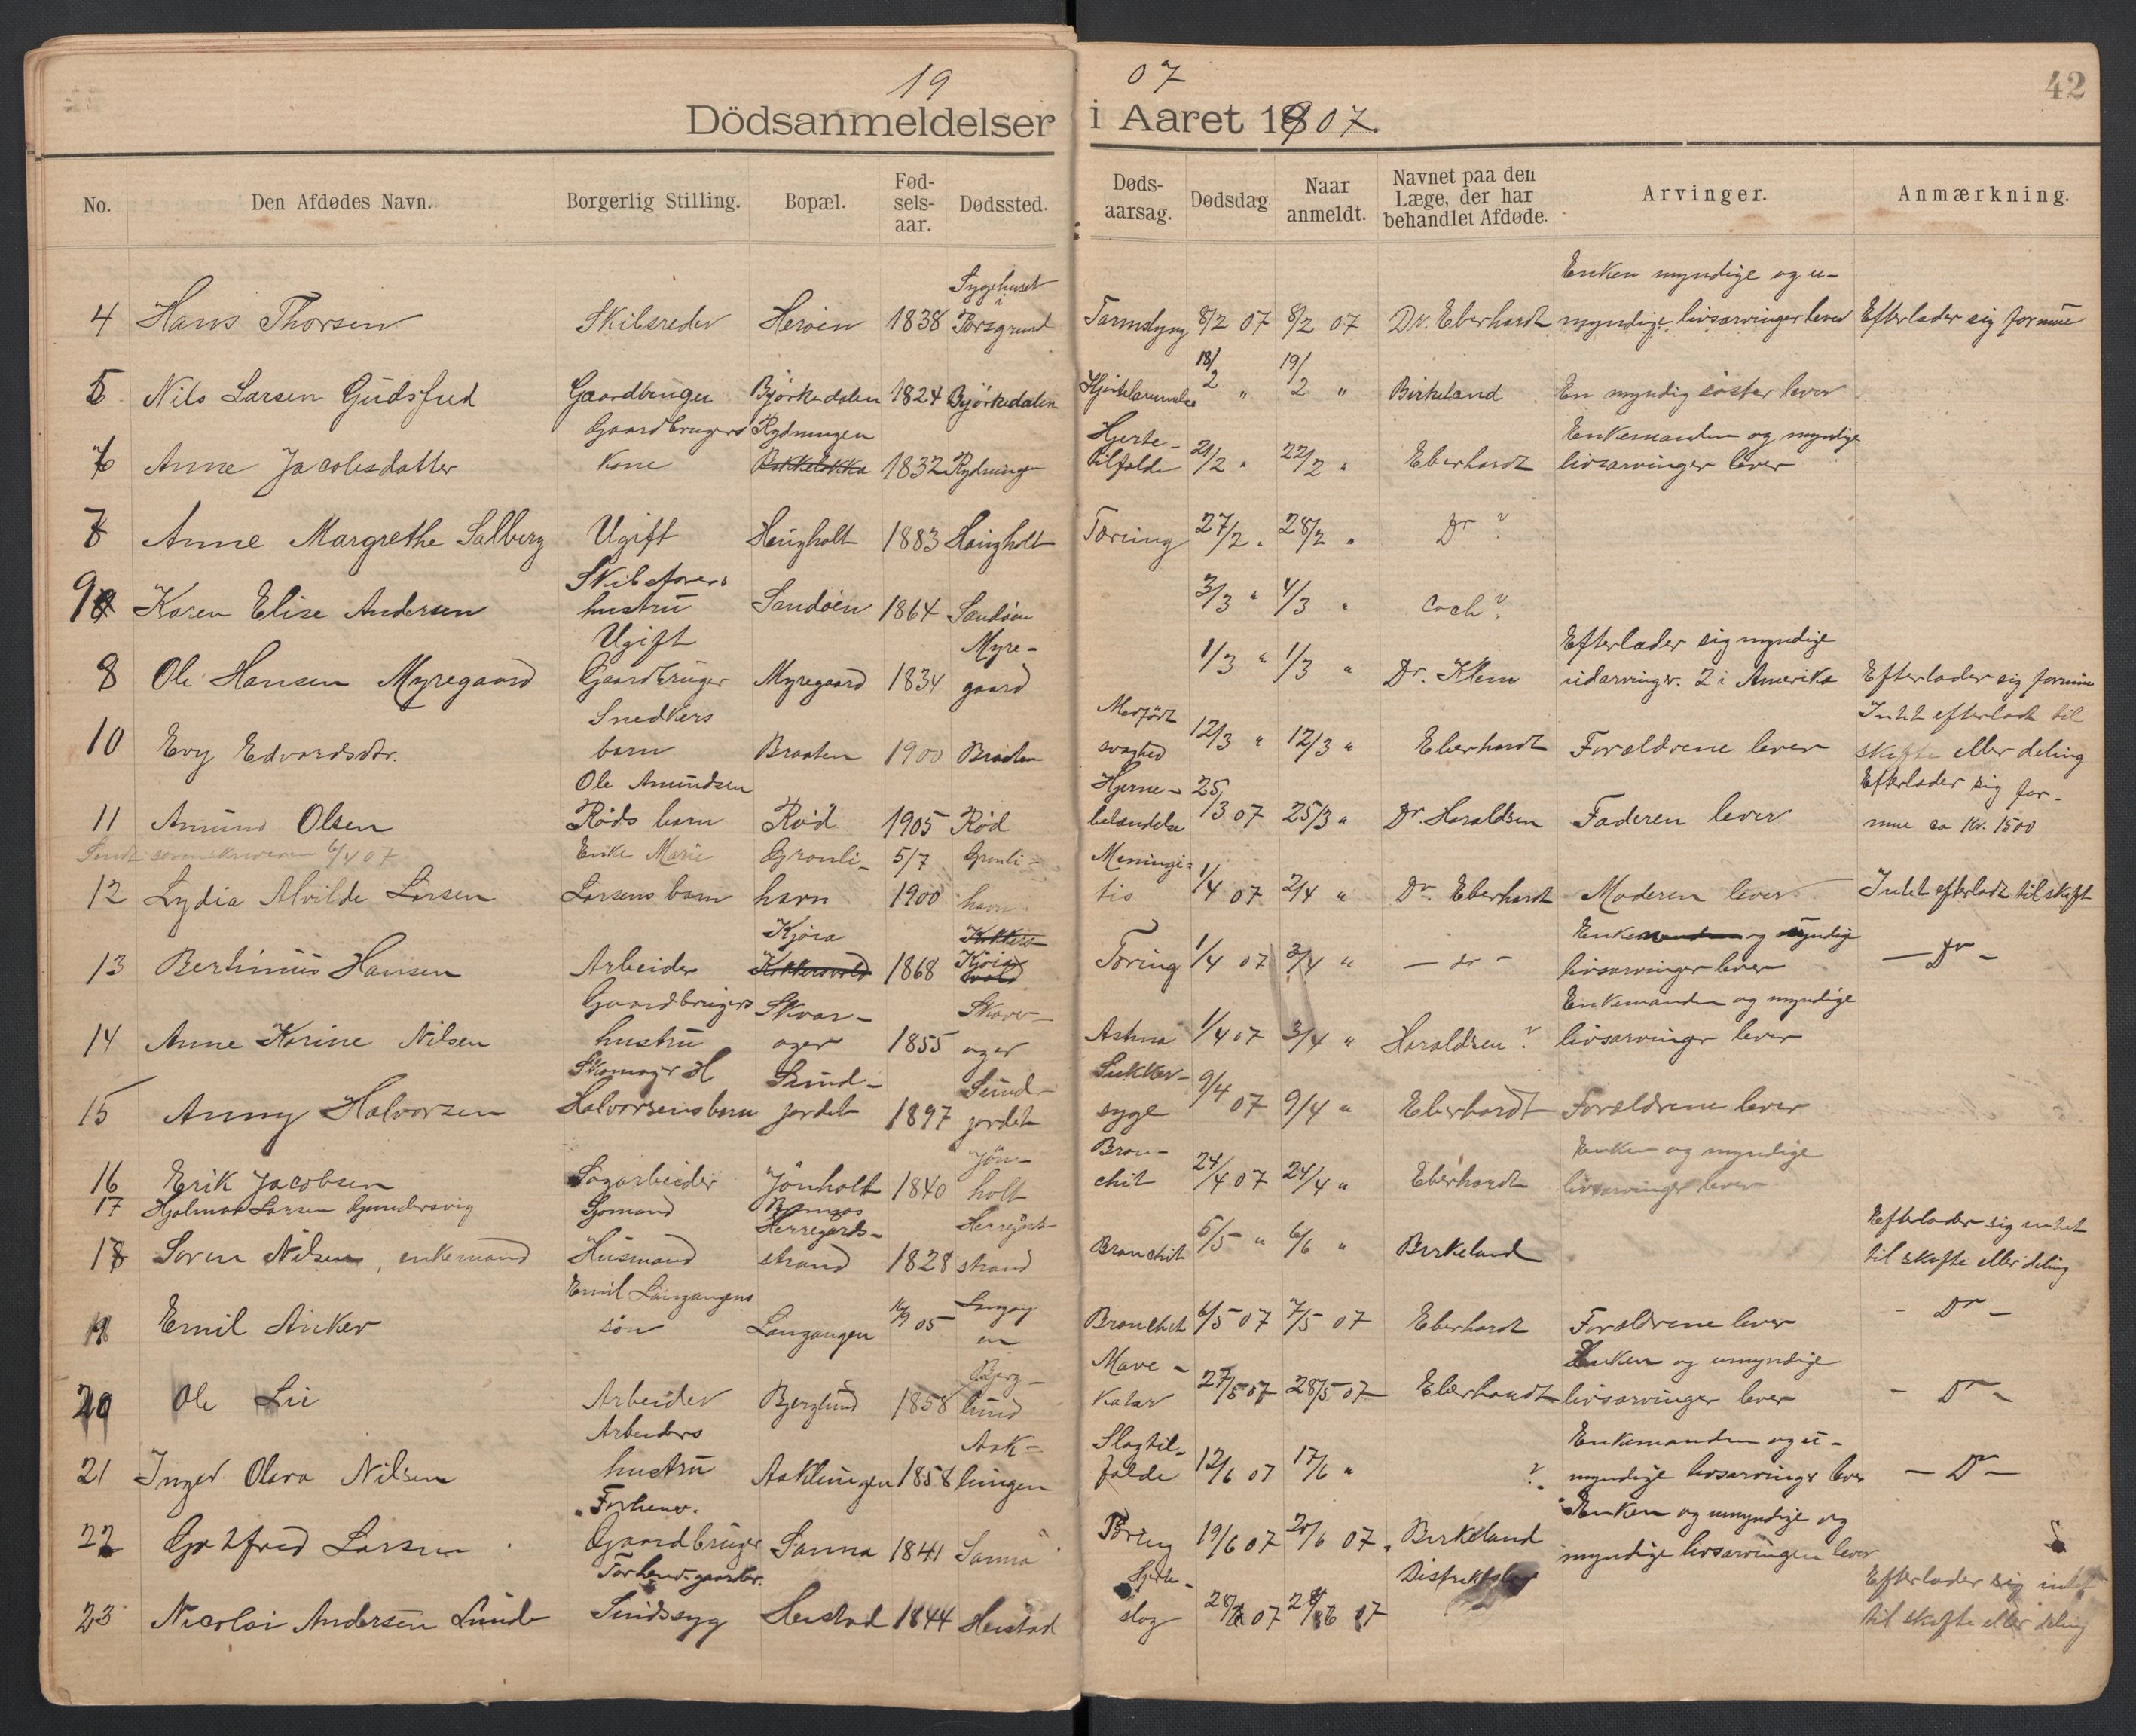 19 07
42
Dödsanmeldelser i Aaret 1907.
No. Den Afdødes Navn. Borgerlig Stilling. Bopæl. Fød-sels-aar. Dødssted. Døds-aarsag. Dødsdag Naar anmeldt. Navnet paa den Læge, der har behandlet Afdøde. Arvinger. Anmærkning.
Sygehuset i Enken myndige og u-
4 Hans Thorsen Skibsreder Herøen 1838 Porsgrund 8/2 07 8/2 07 Dr. Eberhardt myndige livsarvinger lever Efterlader sig formue
18/2 19/2
5 Nils Larsen Gudsfred Gaardbruger Björkedalen 1824 Björkedalen Hjertelammelse " " Birkeland En myndig søster lever
Gaardbrugers Rydningen Hjerte- Enkemanden og myndige
6 Anne Jacobsdatter kone 1832 Rydning tilfælde 21/2 " 22/2 " Eberhardt livsarvinger lever
7 Anne Margrethe Salberg Ugift Heigholt 1883 Heigholt Tæring 27/2 " 28/2 " Dr ?
Skibsførers
9 Karen Elise Andersen hustru Sandøen 1864 Sandøen 3/3 " 4/3 " Coch ?
Ugift Myre- Efterlader sig myndige
8 Ole Hansen Myregaard Gaardbruger Myregaard 1834 gaard 1/3 " 1/3 " Dr. Klem udarvinger. 2 i Amerika Efterlader sig formue
Snedkers Medfødt Intet efterladt til
10 Evy Edvardsdtr. barn Braaten 1900 Braaten svaghed 12/3 " 12/3 " Eberhardt Forældrene lever skifte eller deling
Ole Amundsen Hjerne- Efterlader sig for-
11 Amund Olsen Røds barn Rød 1905 Rød betændelse 25/3 07 25/3 " Dr. Haraldsen Faderen lever mue ca Kr. 1500
Sendt sorenskriveren 6/4 07 Enke Marie Grønli- 5/7 Grønli- Meningi-
12 Lydia Alvilde Larsen Larsens barn havn 1900 havn tis 1/4 07 2/4 " Dr. Eberhardt Moderen lever Intet efterladt til skift
Kjøia Enken og myndig
13 Bertinius Hansen Arbeider 1868 Kjøia Tæring 1/4 07 3/4 " - do - livsarvinger lever - Do -
Gaardbrugers Skvar- Skvar- Enkemanden og myndige
14 Anne Karine Nilsen hustru ager 1855 ager Astma 1/4 07 3/4 " Haraldsen ? livsarvinger lever
Skomager H Sund- Sund- Sukker-
15 Anny Halvorsen Halvorsens barn jordet 1897 jordet syge 9/4 07 9/4 " Eberhardt Forældrene lever
Jøn- Bron- Enken og myndige
16 Erik Jacobsen Sagarbeider Jønholt 1840 holt chit 24/4 07 24/4 " Eberhardt livsarvinger lever
17 Hjalmar Larsen Gundersvig Sjømand
Herregards- Herregards- Efterlader sig intet
18 Søren Nilsen, enkemand Husmand strand 1828 strand Bronchit 5/5 " 6/6 " Birkeland til skifte eller deling
Emil Langangens
19 Emil Anker søn Langangen 05 Langangen Bronchit 6/5 07 7/5 07 Eberhardt Forældrene lever - Do -
Bjerg- Mave- Enken og umyndige
20 Ole Lie Arbeider Bjerglund 1858 lund katar 27/5 07 28/5 07 Eberhardt livsarvinger lever - Do -
Arbeiders Aak- Slagtil- Enkemanden og u-
21 Inger Olava Nilsen hustru Aaklungen 1858 lungen fælde 12/6 07 17/6 " ? myndige livsarvinger lever - Do -
Forhenv. Enken og umyndige og
22 Gotfred Larsen Gaardbruger Sanna 1841 Sanna Tæring 19/6 07 20/6 07 Birkeland myndige livsarvinger lever
Forhenv. gaardbr. Hjerte- Efterlader sig intet
23 Nicolai Andersen Lunde Sindssyg Heistad 1844 Heistad slag 28/6 07 28/6 07 til skifte eller deling